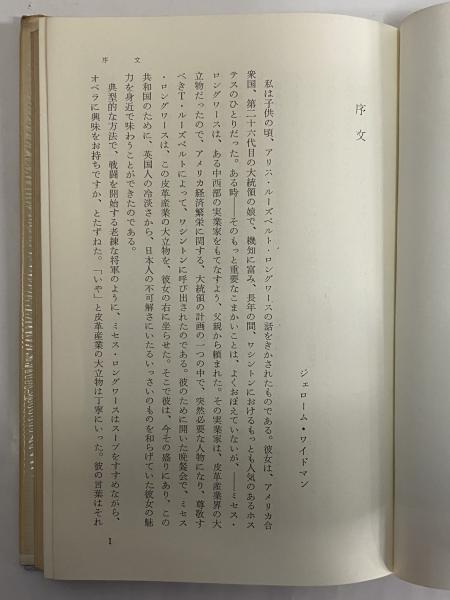 序文
序文
ジェローム・ワイドマン
私は子供の頃、アリス・ルーズベルト・ロングワースの話をきかされたものである。彼女は、アメリカ合
衆国、第二十六代目の大統領の娘で、機知に富み、長年の間、ワシントンにおけるもっとも人気のあるホス
テスのひとりだった。ある時――そのもっと重要なこまかいことは、よくおぼえていないが、――ミセス・
ロングワースは、ある中西部の実業家をもてなすよう、父親から頼まれた。その実業家は、皮革産業界の大
立物だったので、アメリカ経済繁栄に関する、大統領の計画の一つの中で、突然必要な人物になり、尊敬す
べきT・ルーズベルトによって、ワシントンに呼び出されたのである。彼のために開いた晩餐会で、ミセス
・ロングワースは、この皮革産業の大立物を、彼女の右に坐らせた。そこで彼は、今その盛りにあり、この
共和国のために、英国人の冷淡さから、日本人の不可解さにいたるいっさいのものを和らげていた彼女の魅
力を身近で味わうことができたのである。
典型的な方法で、戦闘を開始する老練な将軍のように、ミセス・ロングワースはスープをすすめながら、
オペラに興味をお持ちですか、とたずねた。「いや」と皮革産業の大立物は丁寧にいった。彼の言葉はそれ
1